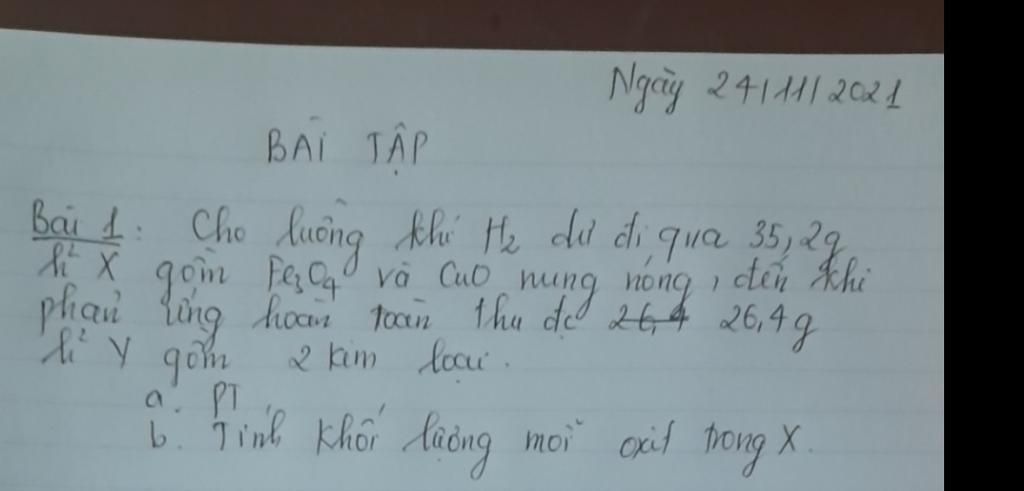 Ngày 24/11/2021
BÀI TẬP
Bài 1: Cho luồng khí H2 dư đi qua 35,2g
h² X gồm Fe3O4 và CuO nung nóng, đến khi
phản ứng hoàn toàn thu đc 26,4 26,4g
h² Y gồm 2 kim loại.
a. PT
b. Tính khối lượng mỗi oxit trong X.